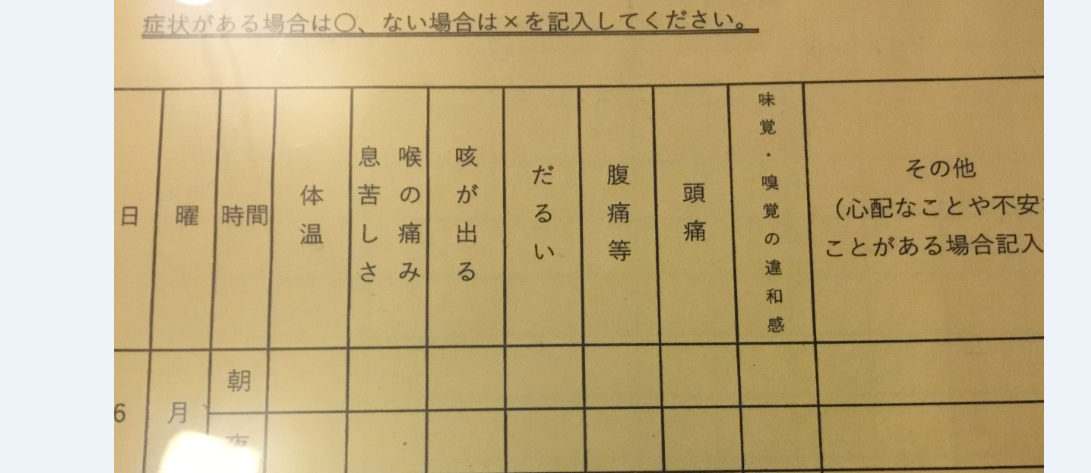 症状がある場合は〇、ない場合は×を記入してください。
日
曜
時間
体温
喉の痛み
息苦しさ
咳が出る
だるい
腹痛等
頭痛
味覚・嗅覚の違和感
その他
（心配なことや不安
ことがある場合記入
6
月
朝
夜